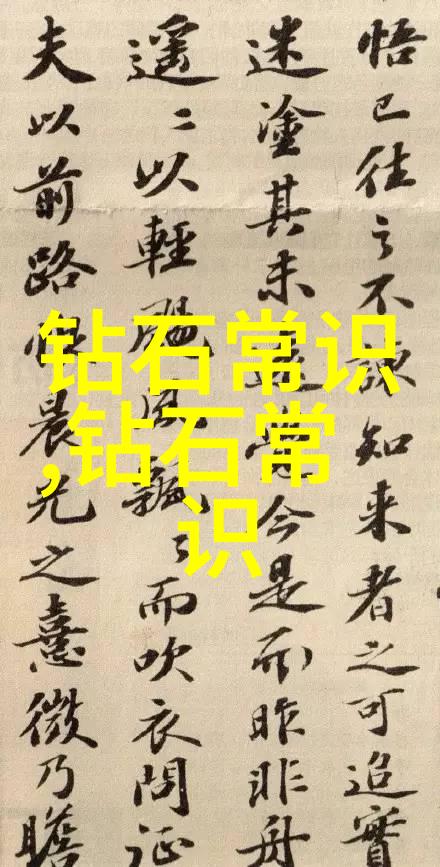 悟已往之不諫知来者之可追實
迷塗其未遠覺今是而昨非舟
遥〻以輕颺風飄〻而吹衣問征
夫以前路恨晨光之熹微乃瞻
钻石常识
,钻石常
识